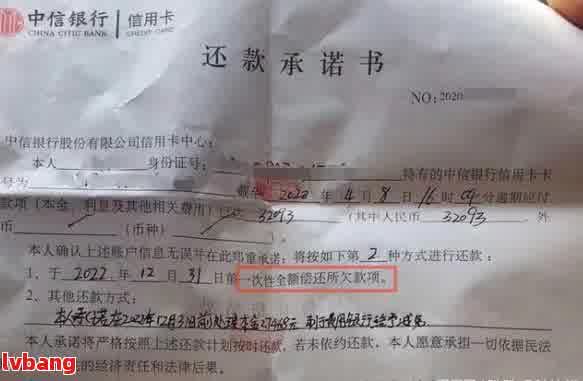 中信银行 信用卡
CHINA CITIC BANK CREDIT CARD
还款承诺书
NO:2020
中信银行股份有限公司信用卡中心:
本人 身份证号: 持有的中信银行信用卡卡
号为 截至2020年4月8日16时 分逾期应付
款项(本金、利息及其他相关费用) 32093 (其中人民币 32093 外
币 / 币种 / )
本人确认上述账户信息无误并在此郑重承诺:将按如下第2种方式进行还款:
1、于2022年12月31日前一次性全额偿还所欠款项。
2、其他还款方式:
本人承诺在2021年12月31日前处理本金27468元
本人承诺将严格按照上述还款计划按时还款,若未依约还款、本人愿意承担一切依据民法
的经济责任和法律后果。
lvbang